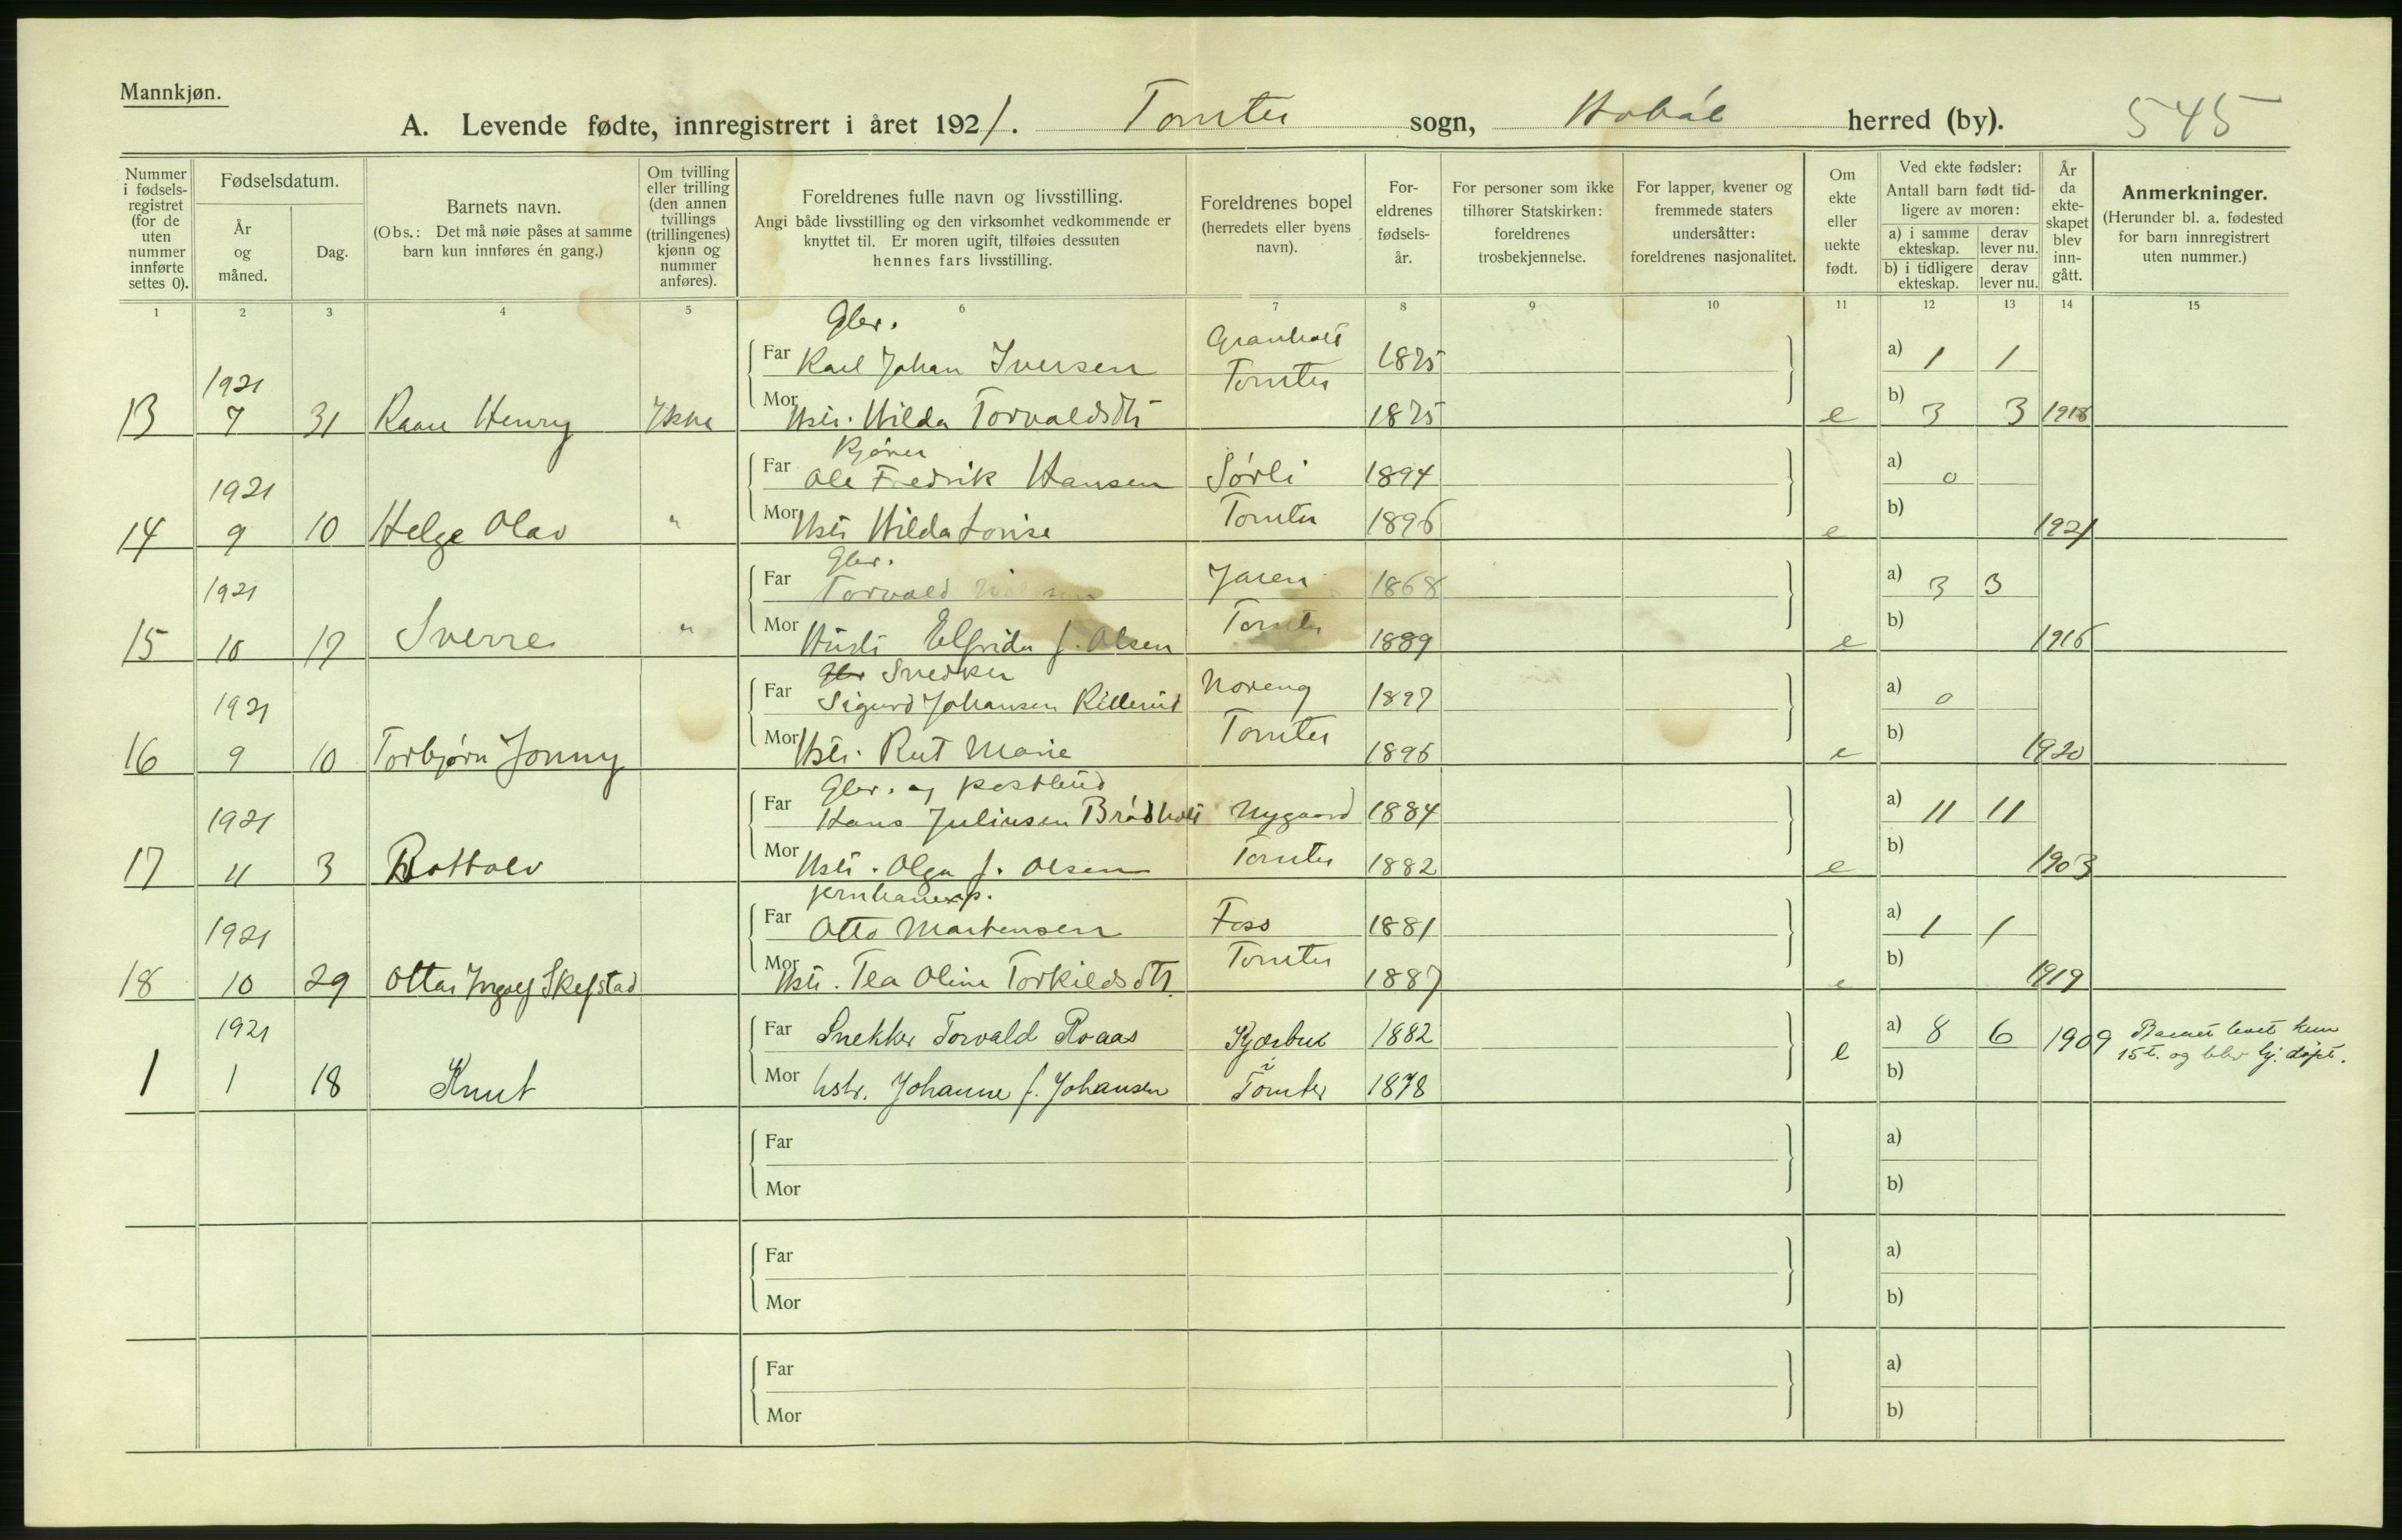 Mannkjøn.
A. Levende fødte, innregistrert i året 1921. Tomter sogn, Hobøl herred (by). 545
Nummer i fødselsregistret (for de uten nummer innførte settes 0).
Fødselsdatum.
År og måned.
Dag.
Barnets navn.
(Obs.: Det må nøie påses at samme barn kun innføres én gang.)
Om tvilling eller trilling (den annen tvillings (trillingenes) kjønn og nummer anføres).
Foreldrenes fulle navn og livsstilling.
Angi både livsstilling og den virksomhet vedkommende er knyttet til. Er moren ugift, tilføies dessuten hennes fars livsstilling.
Foreldrenes bopel (herredets eller byens navn).
Foreldrenes fødselsår.
For personer som ikke tilhører Statskirken: foreldrenes trosbekjennelse.
For lapper, kvener og fremmede staters undersåtter: foreldrenes nasjonalitet.
Om ekte eller uekte født.
Ved ekte fødsler: Antall barn født tidligere av moren:
a) i samme ekteskap. derav lever nu.
b) i tidligere ekteskap. derav lever nu.
År da ekteskapet blev inngått.
Anmerkninger.
(Herunder bl. a. fødested for barn innregistrert uten nummer.)
1 2 3 4 5 6 7 8 9 10 11 12 13 14 15
Gbr.
Far Karl Johan Iversen Granholt 1875 a) 1 1
1921 Tomter
13 7 31 Kaare Henry Ikke Mor Hstr. Hilda Torvaldsdtr 1875 e b) 3 3 1918
Far Ole Fredrik Hansen Sørli 1894 a) 0
1921
14 9 10 Helge Olav " Mor Hstr Hilda Lovise Tomter 1896 e b) 1921
Gbr.
Far Torvald Jaren 1868 a) 3 3
1921
15 10 17 Sverre " Mor Hustr Elfrida f. Olsen Tomter 1889 e b) 1916
Gbr Snedker
Far Sigurd Johansen Noreng 1897 a) 0
1921
16 9 10 Torbjørn Jonny Mor Hstr. Rut Marie Tomter 1896 e b) 1920
Gbr. og postbud
Far Hans Juliusen Brødholt Nygaard 1884 a) 11 11
1921
17 11 3 Bottolv Mor Hstr. Olga f. Olsen Tomter 1882 e b) 1903
jernbaneexp.
Far Otto Martensen Foss 1881 a) 1 1
1921
18 10 29 Ottar Ingolf Skefstad Mor Hstr. Tea Oline Torkildsdtr. Tomter 1887 e b) 1919
1921 Far Snekker Torvald Roaas Kjærbuk 1882 a) 8 6 1909 Barnet levet kun
15 t. og blev hj. døpt.
1 1 18 Knut Mor hstr. Johanne f. Johansen i Tomter 1878 e b)
Far a)
Mor b)
Far a)
Mor b)
Far a)
Mor b)